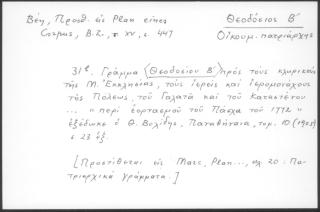 Βέη, Προσθ. εἰς Plan eines
Corpus, B.Z., XV, σ. 447
Θεοδόσιος Β΄
Οἰκουμ. πατριάρχης
31ε. Γράμμα (Θεοδοσίου Β΄) πρὸς τοὺς κληρικοὺς
τῆς Μ. Ἐκκλησίας, τοὺς ἱερεῖς καὶ ἱερομονάχους
τῆς Πόλεως, τοῦ Γαλατᾶ καὶ τοῦ Καταστένου
... "περὶ ἑορτασμοῦ τοῦ Πάσχα τοῦ 1772"
ἐξέδωκε ὁ Θ. Βολίδης, Παναθήναια, τομ. 10 (1905)
σ. 23 ἑξ.
[Προστίθεται εἰς Marc, Plan..., σελ. 20: Πα-
τριαρχικὰ γράμματα.]